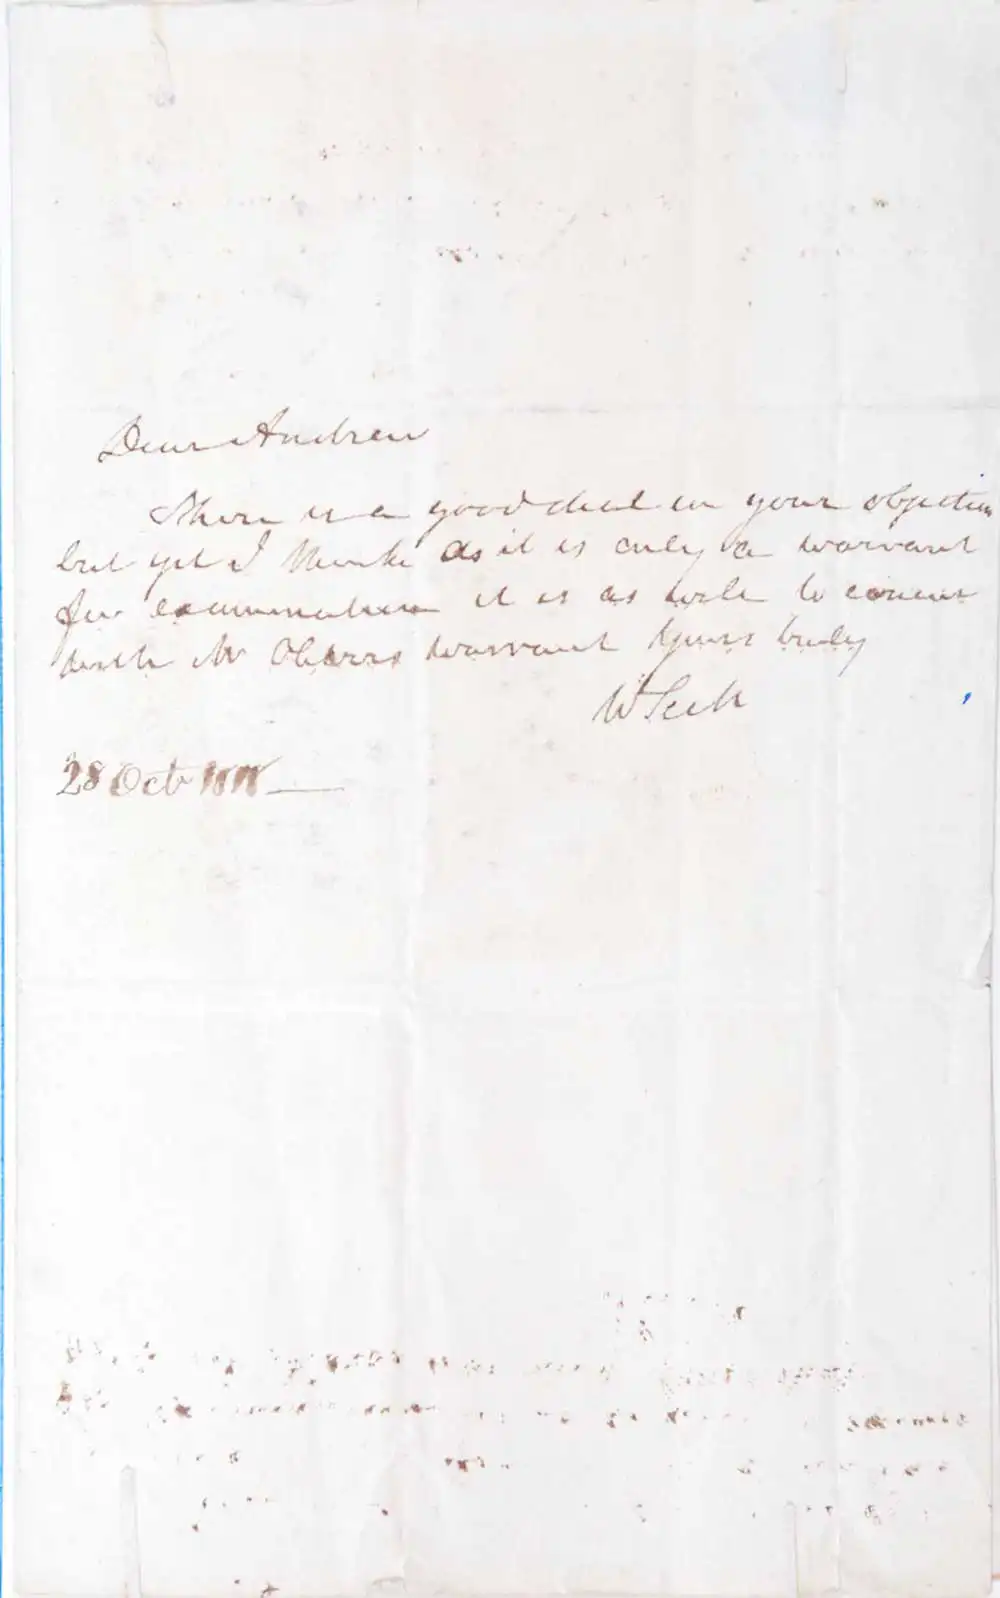 Dear Andrew
There is a good deal in your objection
but yet I think as it is only a warrant
for examination it is as well to concur
with Mr warrant Yours truly
W
28 Oct